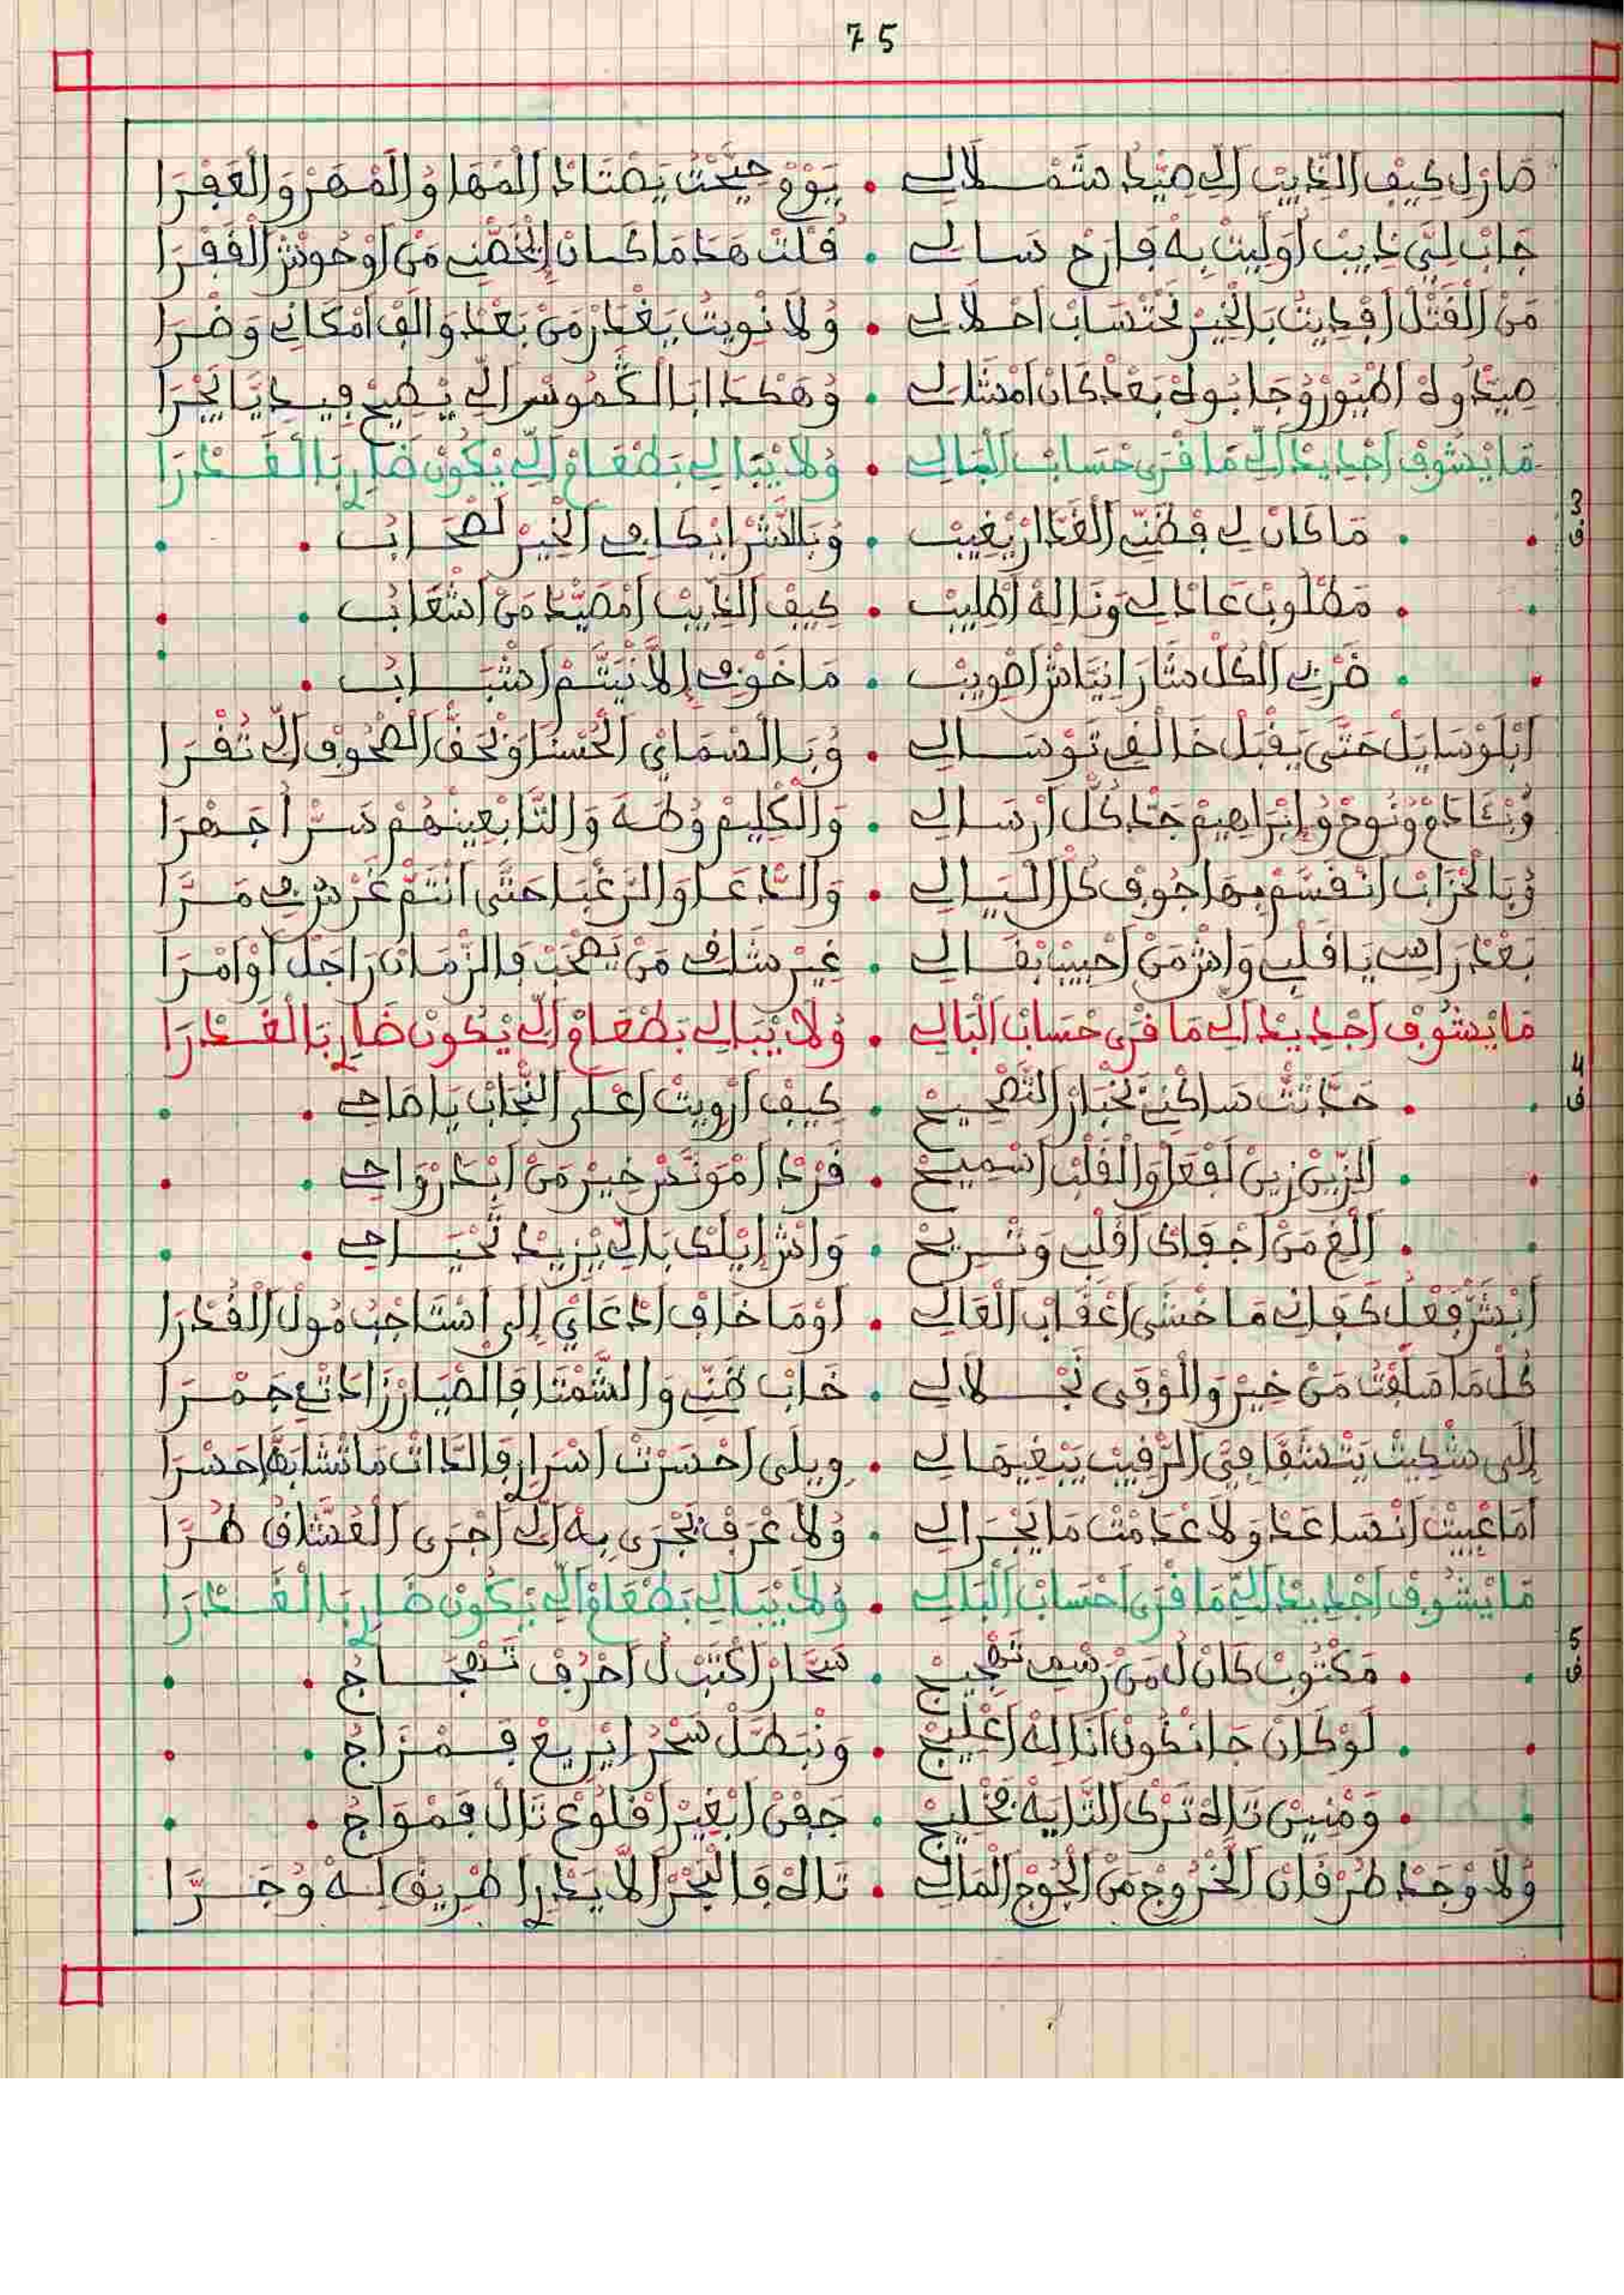 75
صَارْلِ كِيفْ الذِّيبْ الِّي صِيدُ شَمْلَالِي • يَوْمْ جِيحْتْ يَصْطَادْ الْمَهَا وُالْمَهَرْ وَالْعَفْرَا
جَابْ لِيَّ ذِيبْ أُولِيتْ بِهْ فَارَحْ سَالِي • قُلْتْ هَذَا مَا كَانْ إِيخَصْنِي مَنْ اوْحُوشْ الْقَفْرَا
مَنْ الْقَتْلْ افْدِيتْ بَالْخِيرْ نَحْتْسَابْ احْلَالِي • وُلَا نْوِيتْ يَغْدَرْ مَنْ بَعْدْ وَالَفْ امْكَانِي وَضْرَا
صِيدُوهْ اطْيُورْ وُجَابُوهْ بَعْدْ كَانْ امْتَالِي • وُهَكْدَا ابَا الْكَمُوسْ الِّي يْطِيحْ فِيدِيَّا يَجْرَا
مَا يْشُوفْ اجْدِيدْ الِّي مَا قْرَى حْسَابْ الْبَالِي • وُلَا يْبَالِي بَطْعَامْ الِّي يْكُونْ ضَارِي بَالْغَدْرَا
3
ف
مَا كَانْ لِي فْظَنِّي الْغَدَّارْ يْغِيبْ • وُبَالشَّرْ ايْكَافِي الْخِيرْ لَصْحَابُ
مَطْلُوبْ عَادْلِي وَنَا لِهْ اطْلِيبْ • كِيفْ الذِّيبْ امْصَيَّدْ مَنْ اشْعَابُ
ضَرِّي الْكُلْ سَارَ ايْتَاشْ اطْوِيبْ • مَا خَوْفِي إِلَّا نْيَتَّمْ اشْبَابُ
ابْلَوْسَايَلْ حَتَّى يَقْبَلْ خَالْقِي تَوْسَالِي • وُبَالسْمَايْ الْحُسْنَا وَبْحَقّْ الصْحُوفْ الِّي تُقْرَا
وُبْئَادَمْ وْنُوحْ وُإِبْرَاهِيمْ جَدْ كُلّْ ارْسَالِي • وَالْكْلِيمْ وُطَهَ وَالتَّابْعِينْهُمْ سَرّْ اجَهْرَا
وُبَالْحْزَابْ انْقَسَّمْ بِهَا جُوفْ كُلّْ الْيَالِي • وَالدّْعَا وَالرَّغْبَا حَتَّى انْتَمّْ غَرْسِي مَرَّا
بَعْدْ رَاسِي يَا قَلْبِي وَاشْ مَنْ احْبِيبْ بْقَالِي • غِيرْ شَلَّفْ مَنْ يَصْحَبْ فَالزّْمَانْ رَاجَلْ أَوْ امْرَا
مَا يْشُوفْ اجْدِيدْ الِّي مَا قْرَى حْسَابْ الْبَالِي • وُلَا يْبَالِي بَطْعَامْ الِّي يْكُونْ ضَارِي بَالْغَدْرَا
4
ف
حَدَّثْتْ سَاكْنِي بَخْبَارْ التَّصْحِيحْ • كِيفْ ارْوِيتْ اعْلَى النّْجَابْ يَا صَاحِي
الزِّينْ زِينْ لَفْعَلْ وَالْقَلْبْ اسْمِيحْ • فَرْدْ امْوَنَّسْ خِيرْ مَنْ ابْدَرْوَاحِي
الْغِ مَنْ اجْفَاكْ اقَلْبِي وَتْرِيحْ • وَاشْ ايْلَكْ بَالِّي يْزِيدْ تَحْيَاحِي
ابْشَرّْ فَعْلُ كَفَانِي مَا خْشَى اعْقَابْ الْعَالِي • أَوْ مَا خَافْ ادْعَايْ إِلَى اسْتَاجْبُ مُولْ الْقُدْرَا
كُلّْ مَا سَلَّفْتُ مَنْ خِيرْ وَالْوْفَى نَجْلَالِي • خَابْ ظَنِّي وَالشَّمْتَا فَالضْيَارْ زَادَتْنِي جَمْرَا
إِلَى شْكِيتْ يَتْشَفَّا فِيَّ الرّْقِيبْ يَبْغِيهَالِي • وِيلَى احْسَرْتْ اسْرَارِي فَالدَّاتْ مَا تْشَابَهْهَا حَسْرَا
امَّا عْيِيتْ انْسَاعَدْ وَلَا عْدَمْتْ مَا يَجْرَالِي • وُلَا عْرَفْ يَجْرَى بِهْ الِّي اجْرَى الْعُشَّاقْ طُرَّا
مَا يْشُوفْ اجْدِيدْ الِّي مَا قْرَى احْسَابْ الْبَالِي • وُلَا يْبَالِي بَطْعَامْ الِّي يْكُونْ ضَارِي بَالْغَدْرَا
5
ف
مَكْتُوبْ كَانْ لُ مَنْ رَسْمِي تَهْجِيجْ • سَحَّارْ اكْتَبْ لُ احْرُفْ تَهْجَاجُ
لَوْ كَانْ جَا نْكُونْ انَا لِهْ اعْلِيجْ • وَنْبَطَّلْ سَحْرُ ايْرِيعْ فَمْزَاجُ
وَمْنِينْ تَاهْ تَرْكُ التَّايَهْ فَخْلِيجْ • جَفْنْ ابْغِيرْ اقْلُوعْ تَاهْ فَمْوَاجُ
وُلَا وْجَدْ طُرْقَانْ الْخْرُوجْ مَنْ الْجُوجْ الْمَالِي • تَاهْ فَالْبْحَرْ الَّا يَدْرِي اطْرِيقْ لِهْ وُجَرَّا